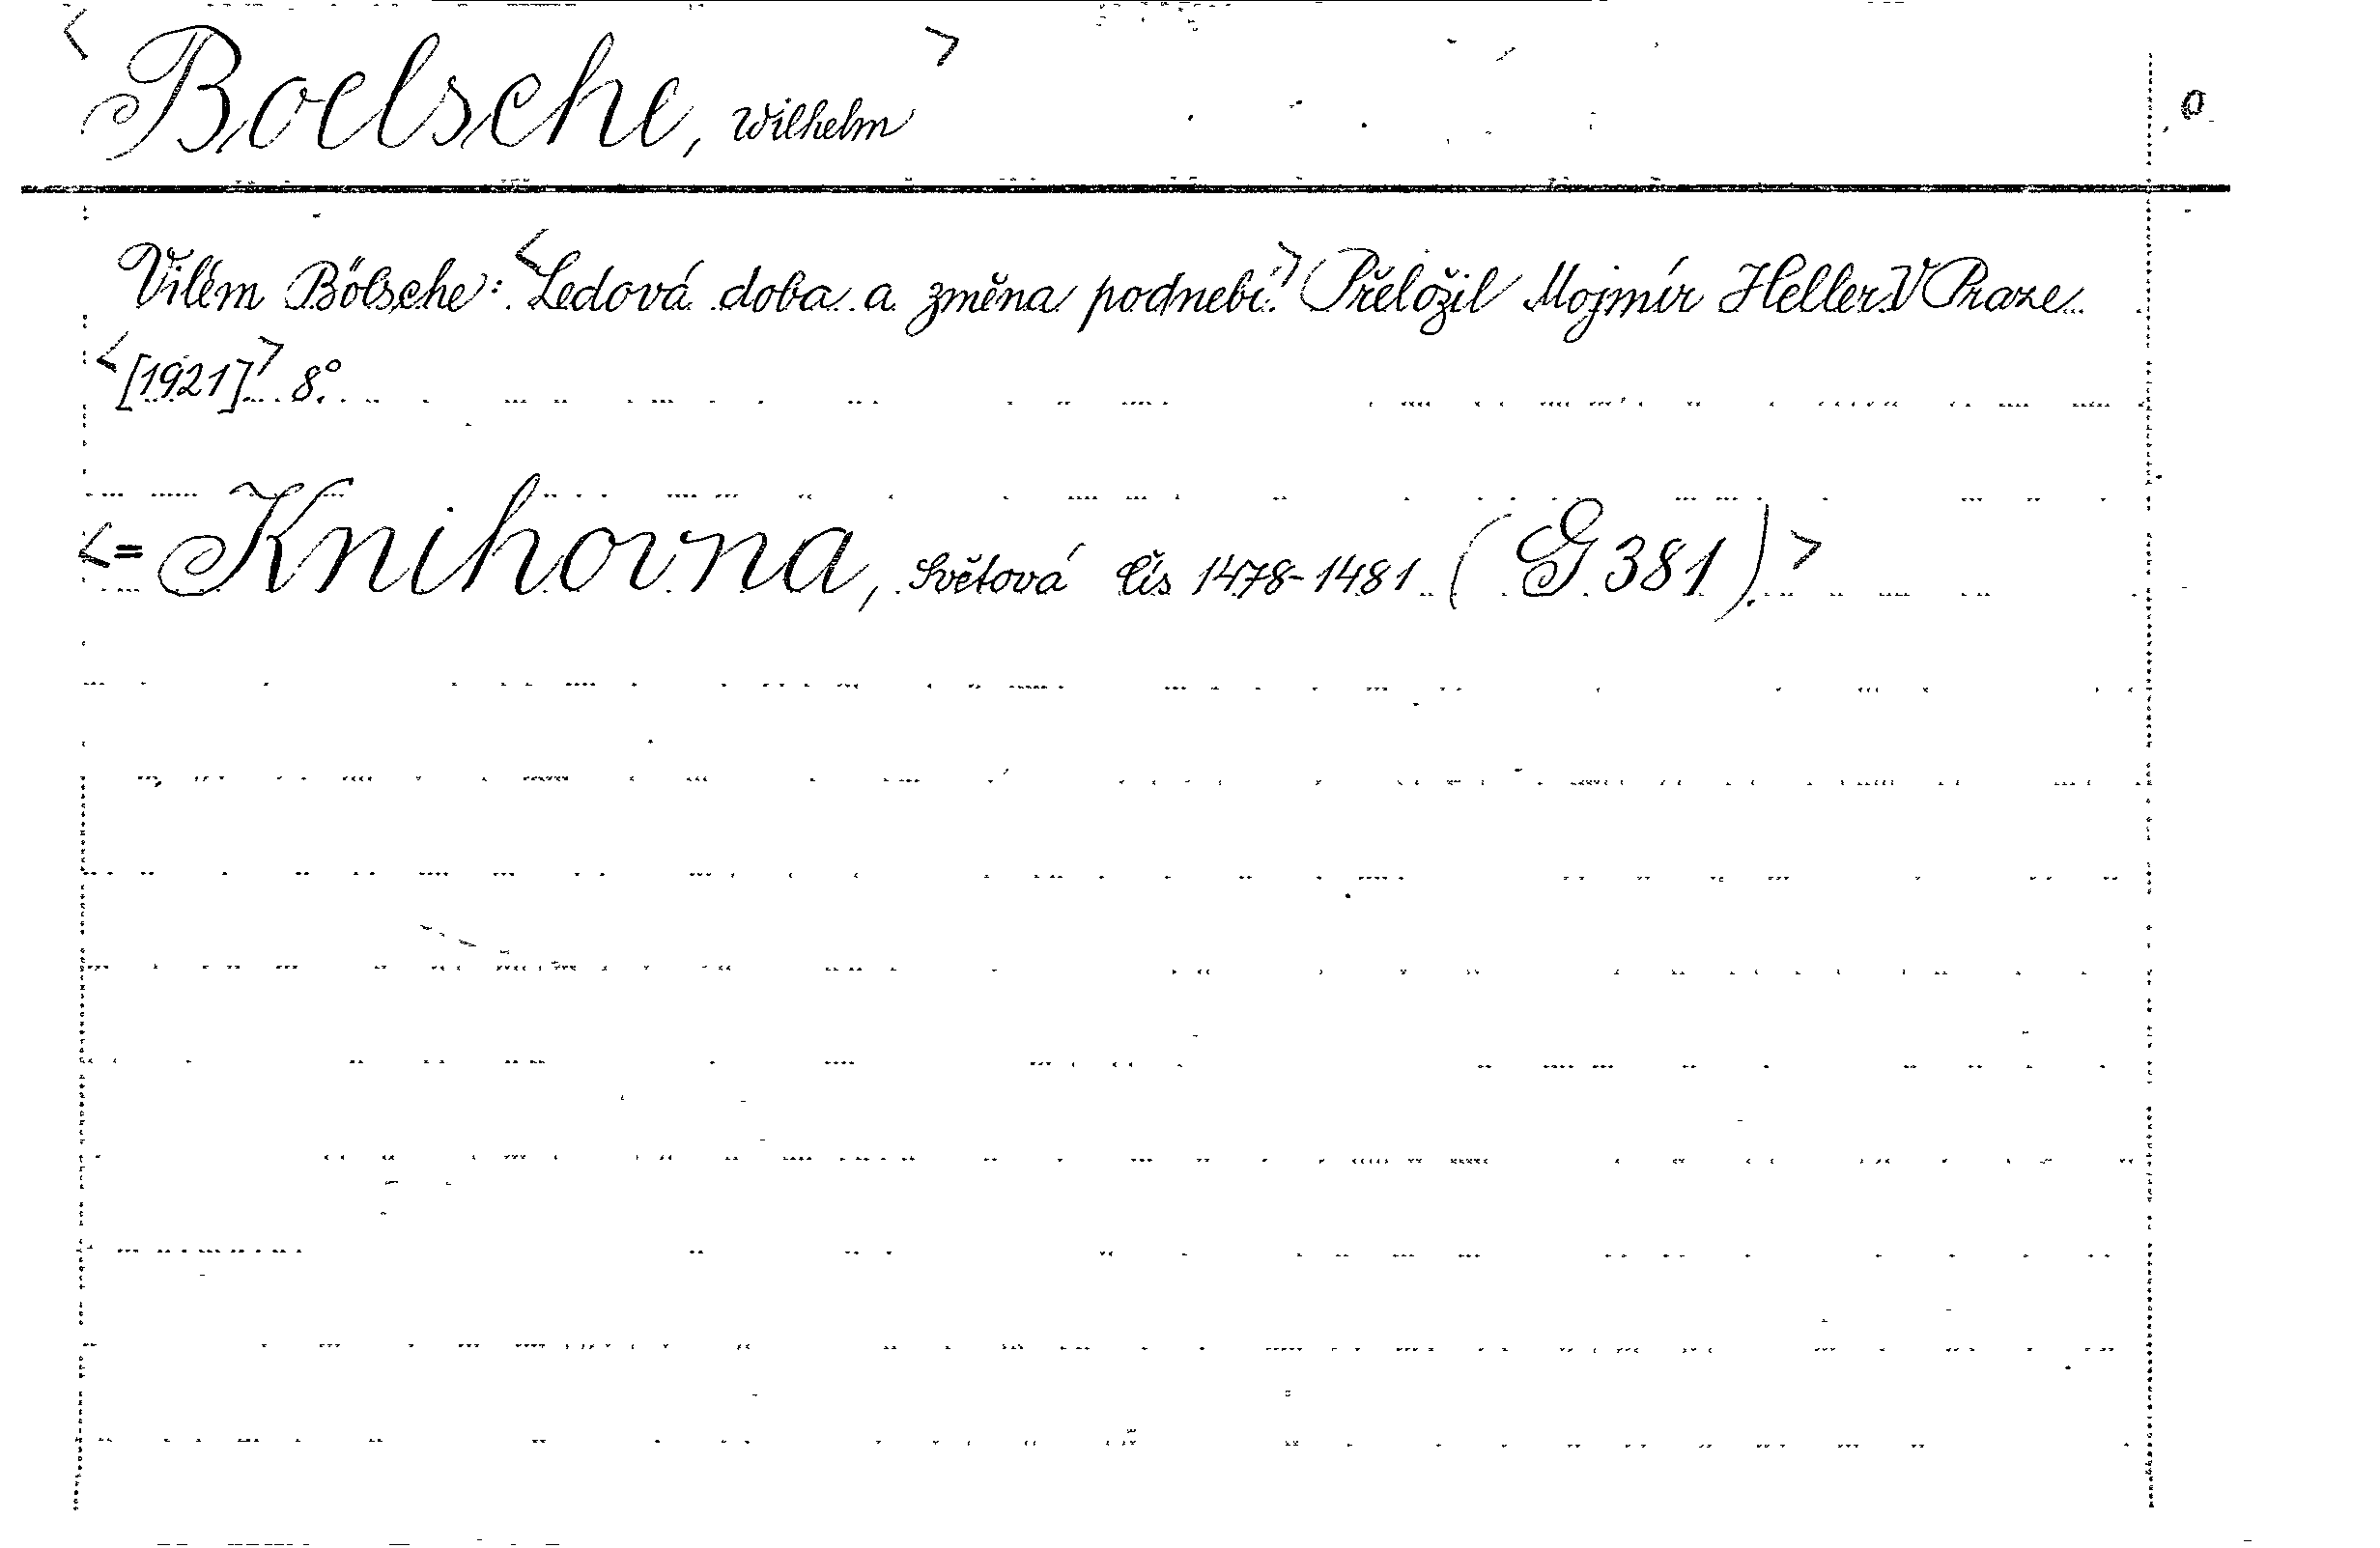 <Boelsche, Wilhelm>
Vilém Bölsche: <Ledová doba a změna podnebí.> Přeložil Mojmír Heller. V Praze
<[1921]> 8°.
<= Knihovna, Světová čís 1478-1481 (G 381).>